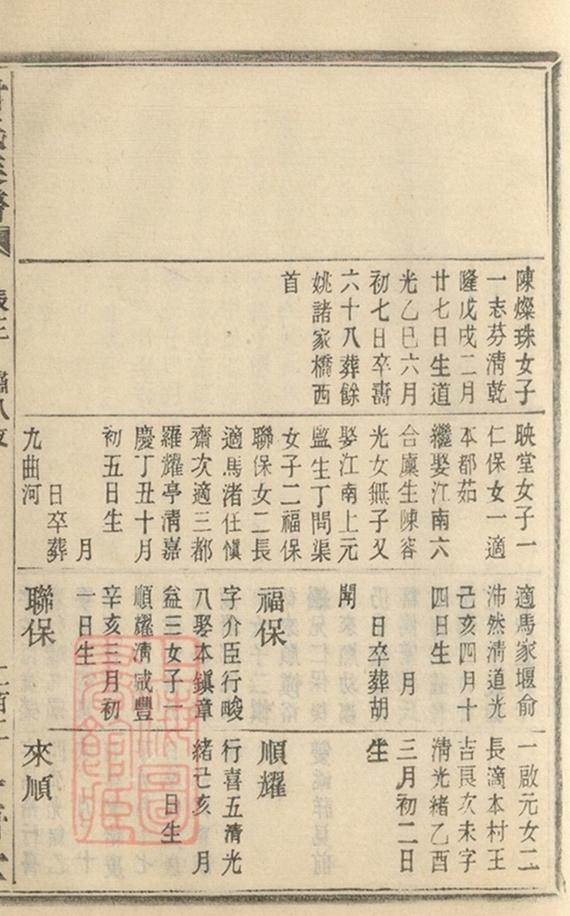 陳燦珠女子
一志芬清乾
隆戊戌二月
廿七日生道
光乙巳六月
初七日卒壽
六十八葬餘
姚諸家橋西
首
映堂女子一
仁保女一適
本都茹
繼娶江南六
合廩生陳容
光女無子又
娶江南上元
監生丁問渠
女子二福保
聯保女二長
適馬渚任愼
齋次適三都
羅耀亭清嘉
慶丁丑十月
初五日生
月
日卒葬
九曲河
適馬家堰俞
沛然清道光
己亥四月十
四日生
月
日卒葬胡
閘
福保
字介臣行晙
八娶本鎮章
益三女子一
順耀清咸豐
辛亥三月初
一日生
聯保
一啟元女二
長適本村王
吉艮次未字
清光緒乙酉
三月初二日
生
順耀
行喜五清光
緒己亥 月
日生
來順